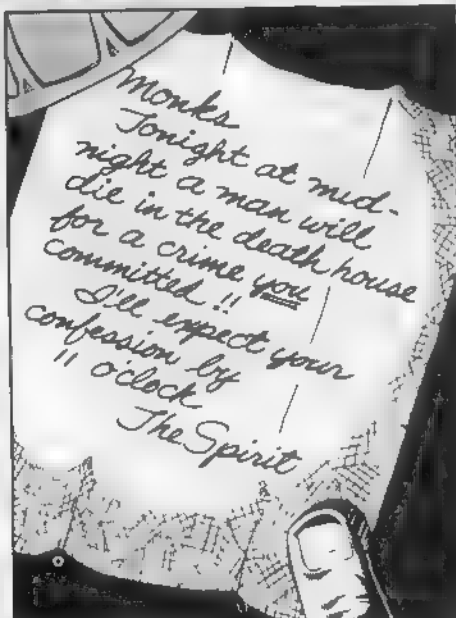 Monks
Tonight at mid-
night a man will
die in the death house
for a crime you
committed!!
I'll expect your
confession by
11 o'clock
The Spirit